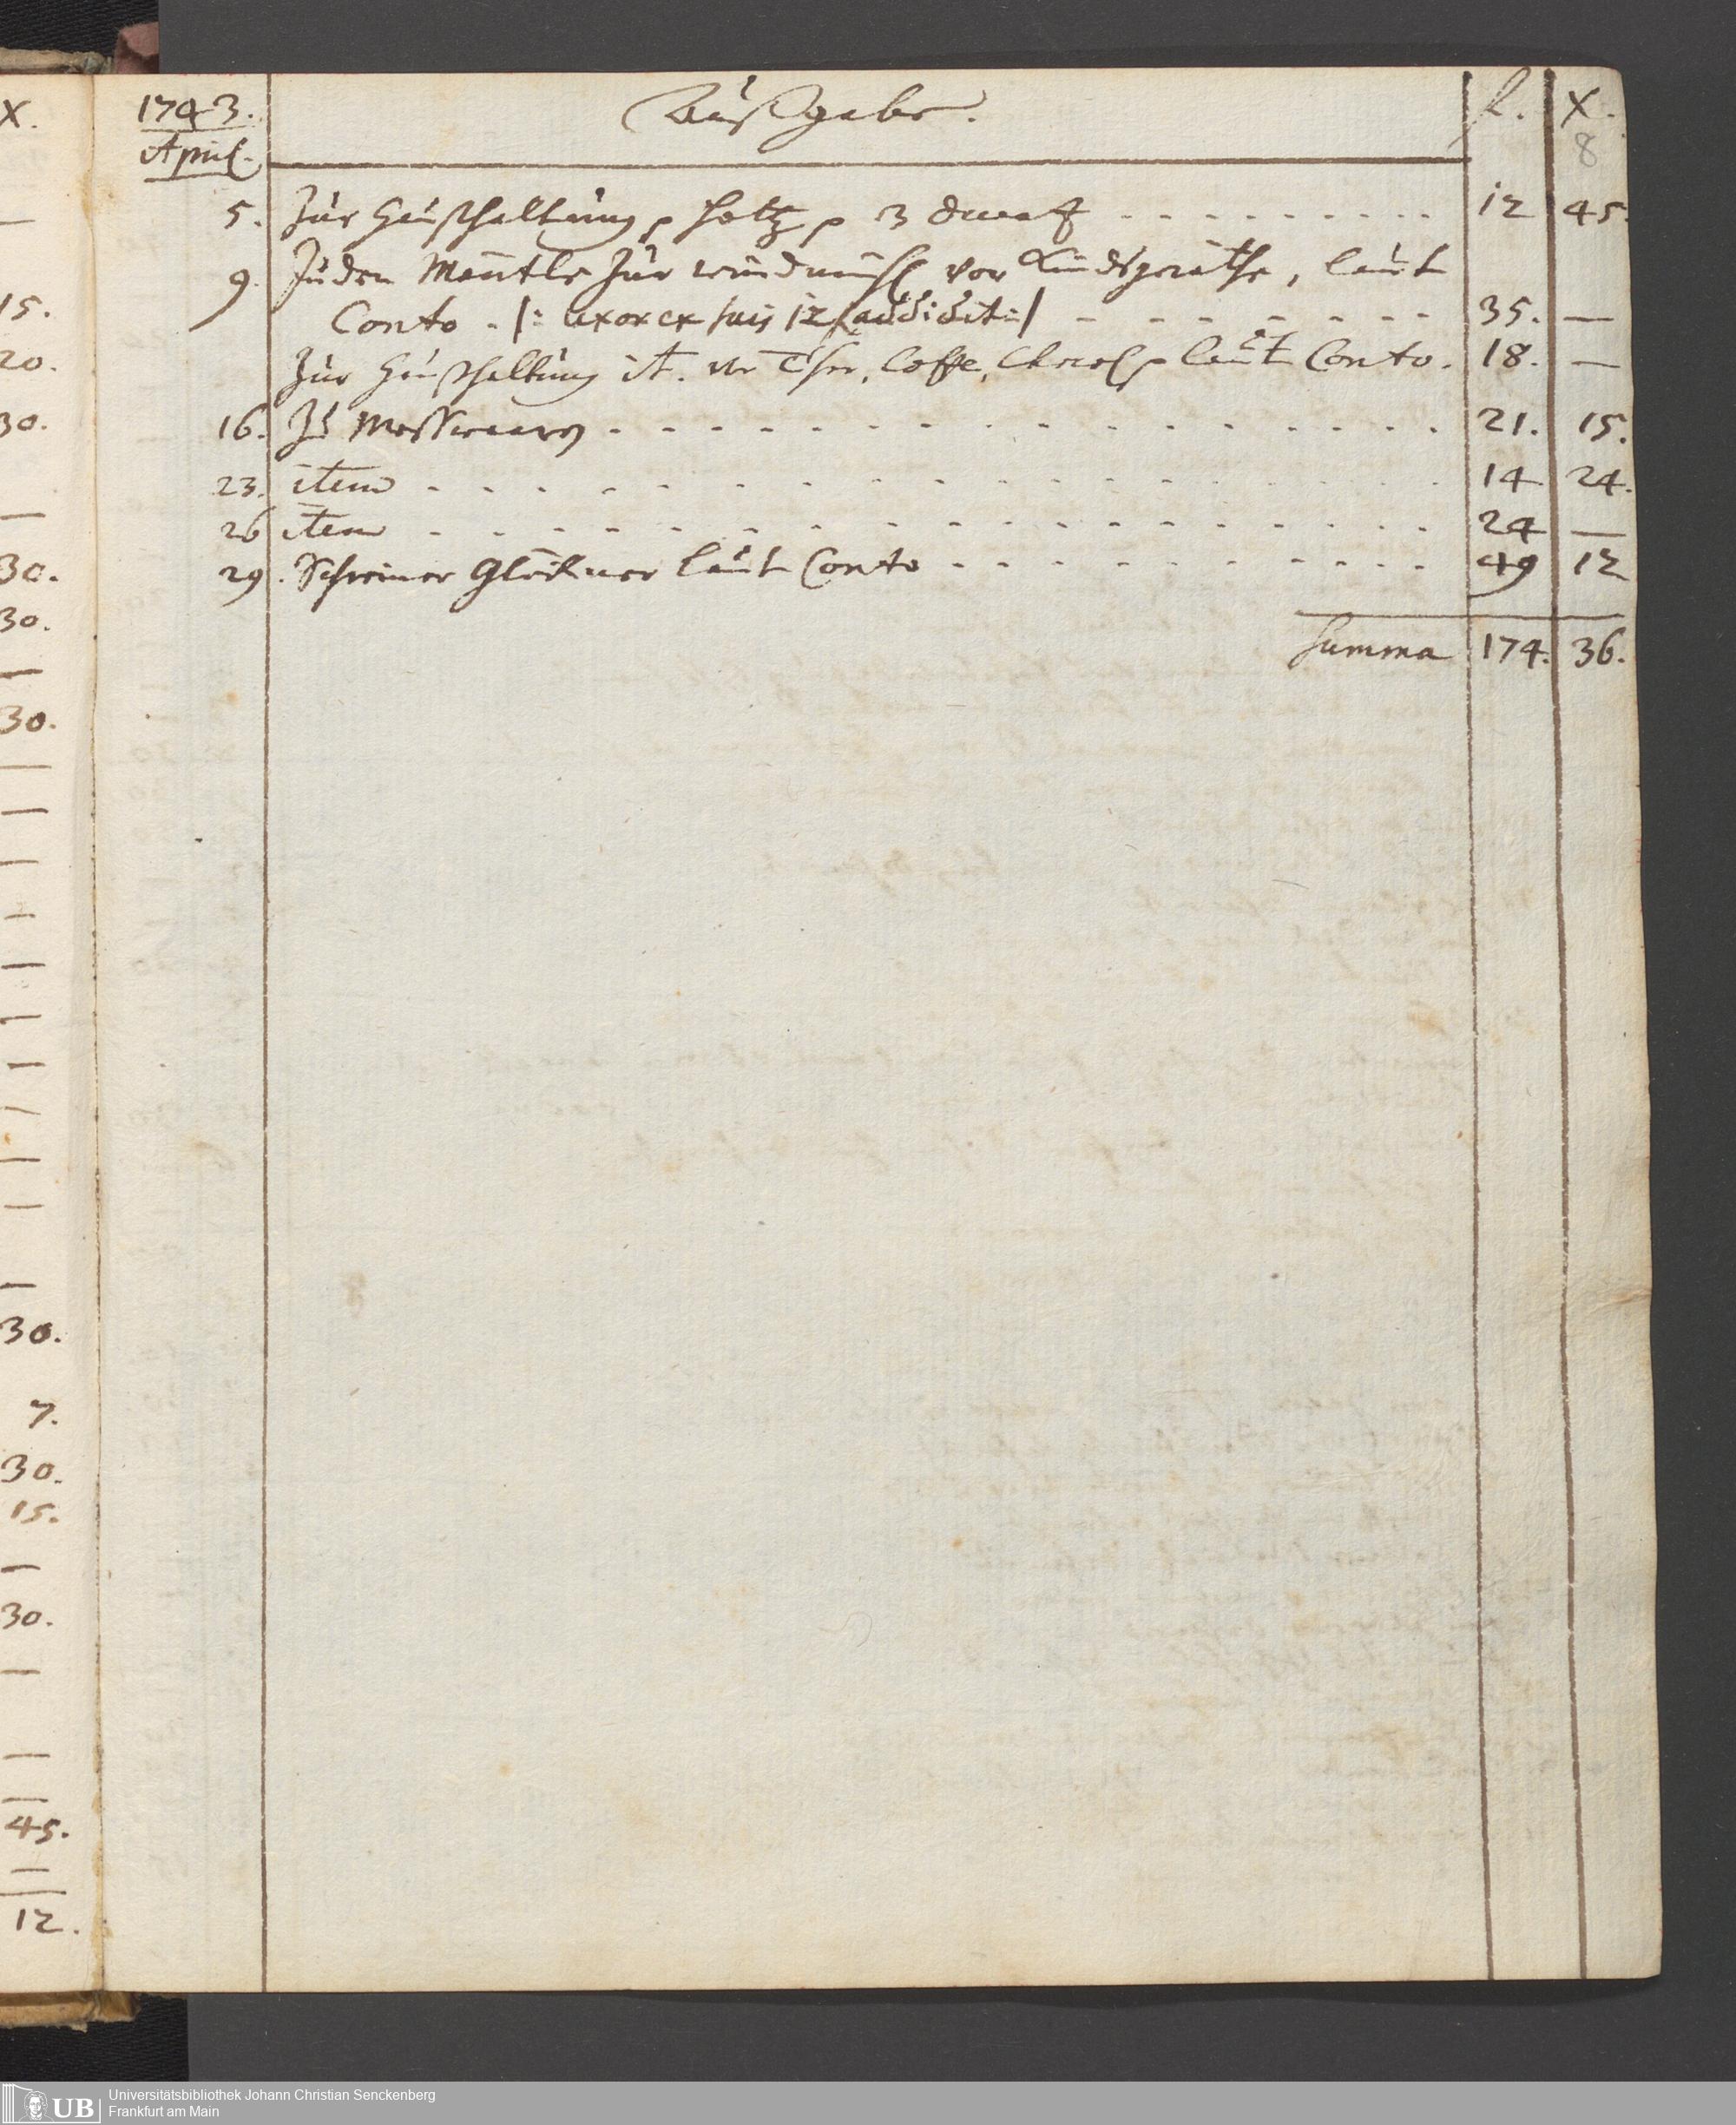 X.
15.
20.
30.
—
30.
30.
—
30.
—
—
—
—
—
—
—
—
—
—
—
30.
7.
30.
15.
—
30.
—
—
—
45.
—
12.
1743. Außgabe. f. X.
April. 8
5. Zur Haußhaltung p Holtz p 3 - - - - - - - - - 12 45.
9. Juden Mantle zur vor Kindsgeräthe, laut
Conto . /: uxor ex suis 12 f addidit :/ - - - - - - - 35. —
Zur Haußhaltung it. vr Thee, Coffe, p laut Conto. 18. —
16. Zu - - - - - - - - - - - - - - - 21. 15.
23. item - - - - - - - - - - - - - - - - - 14 24.
26 item - - - - - - - - - - - - - - - - - 24 —
29. Schreiner laut Conto - - - - - - - - - - 49 12
Summa 174. 36.
UB Universitätsbibliothek Johann Christian Senckenberg
Frankfurt am Main